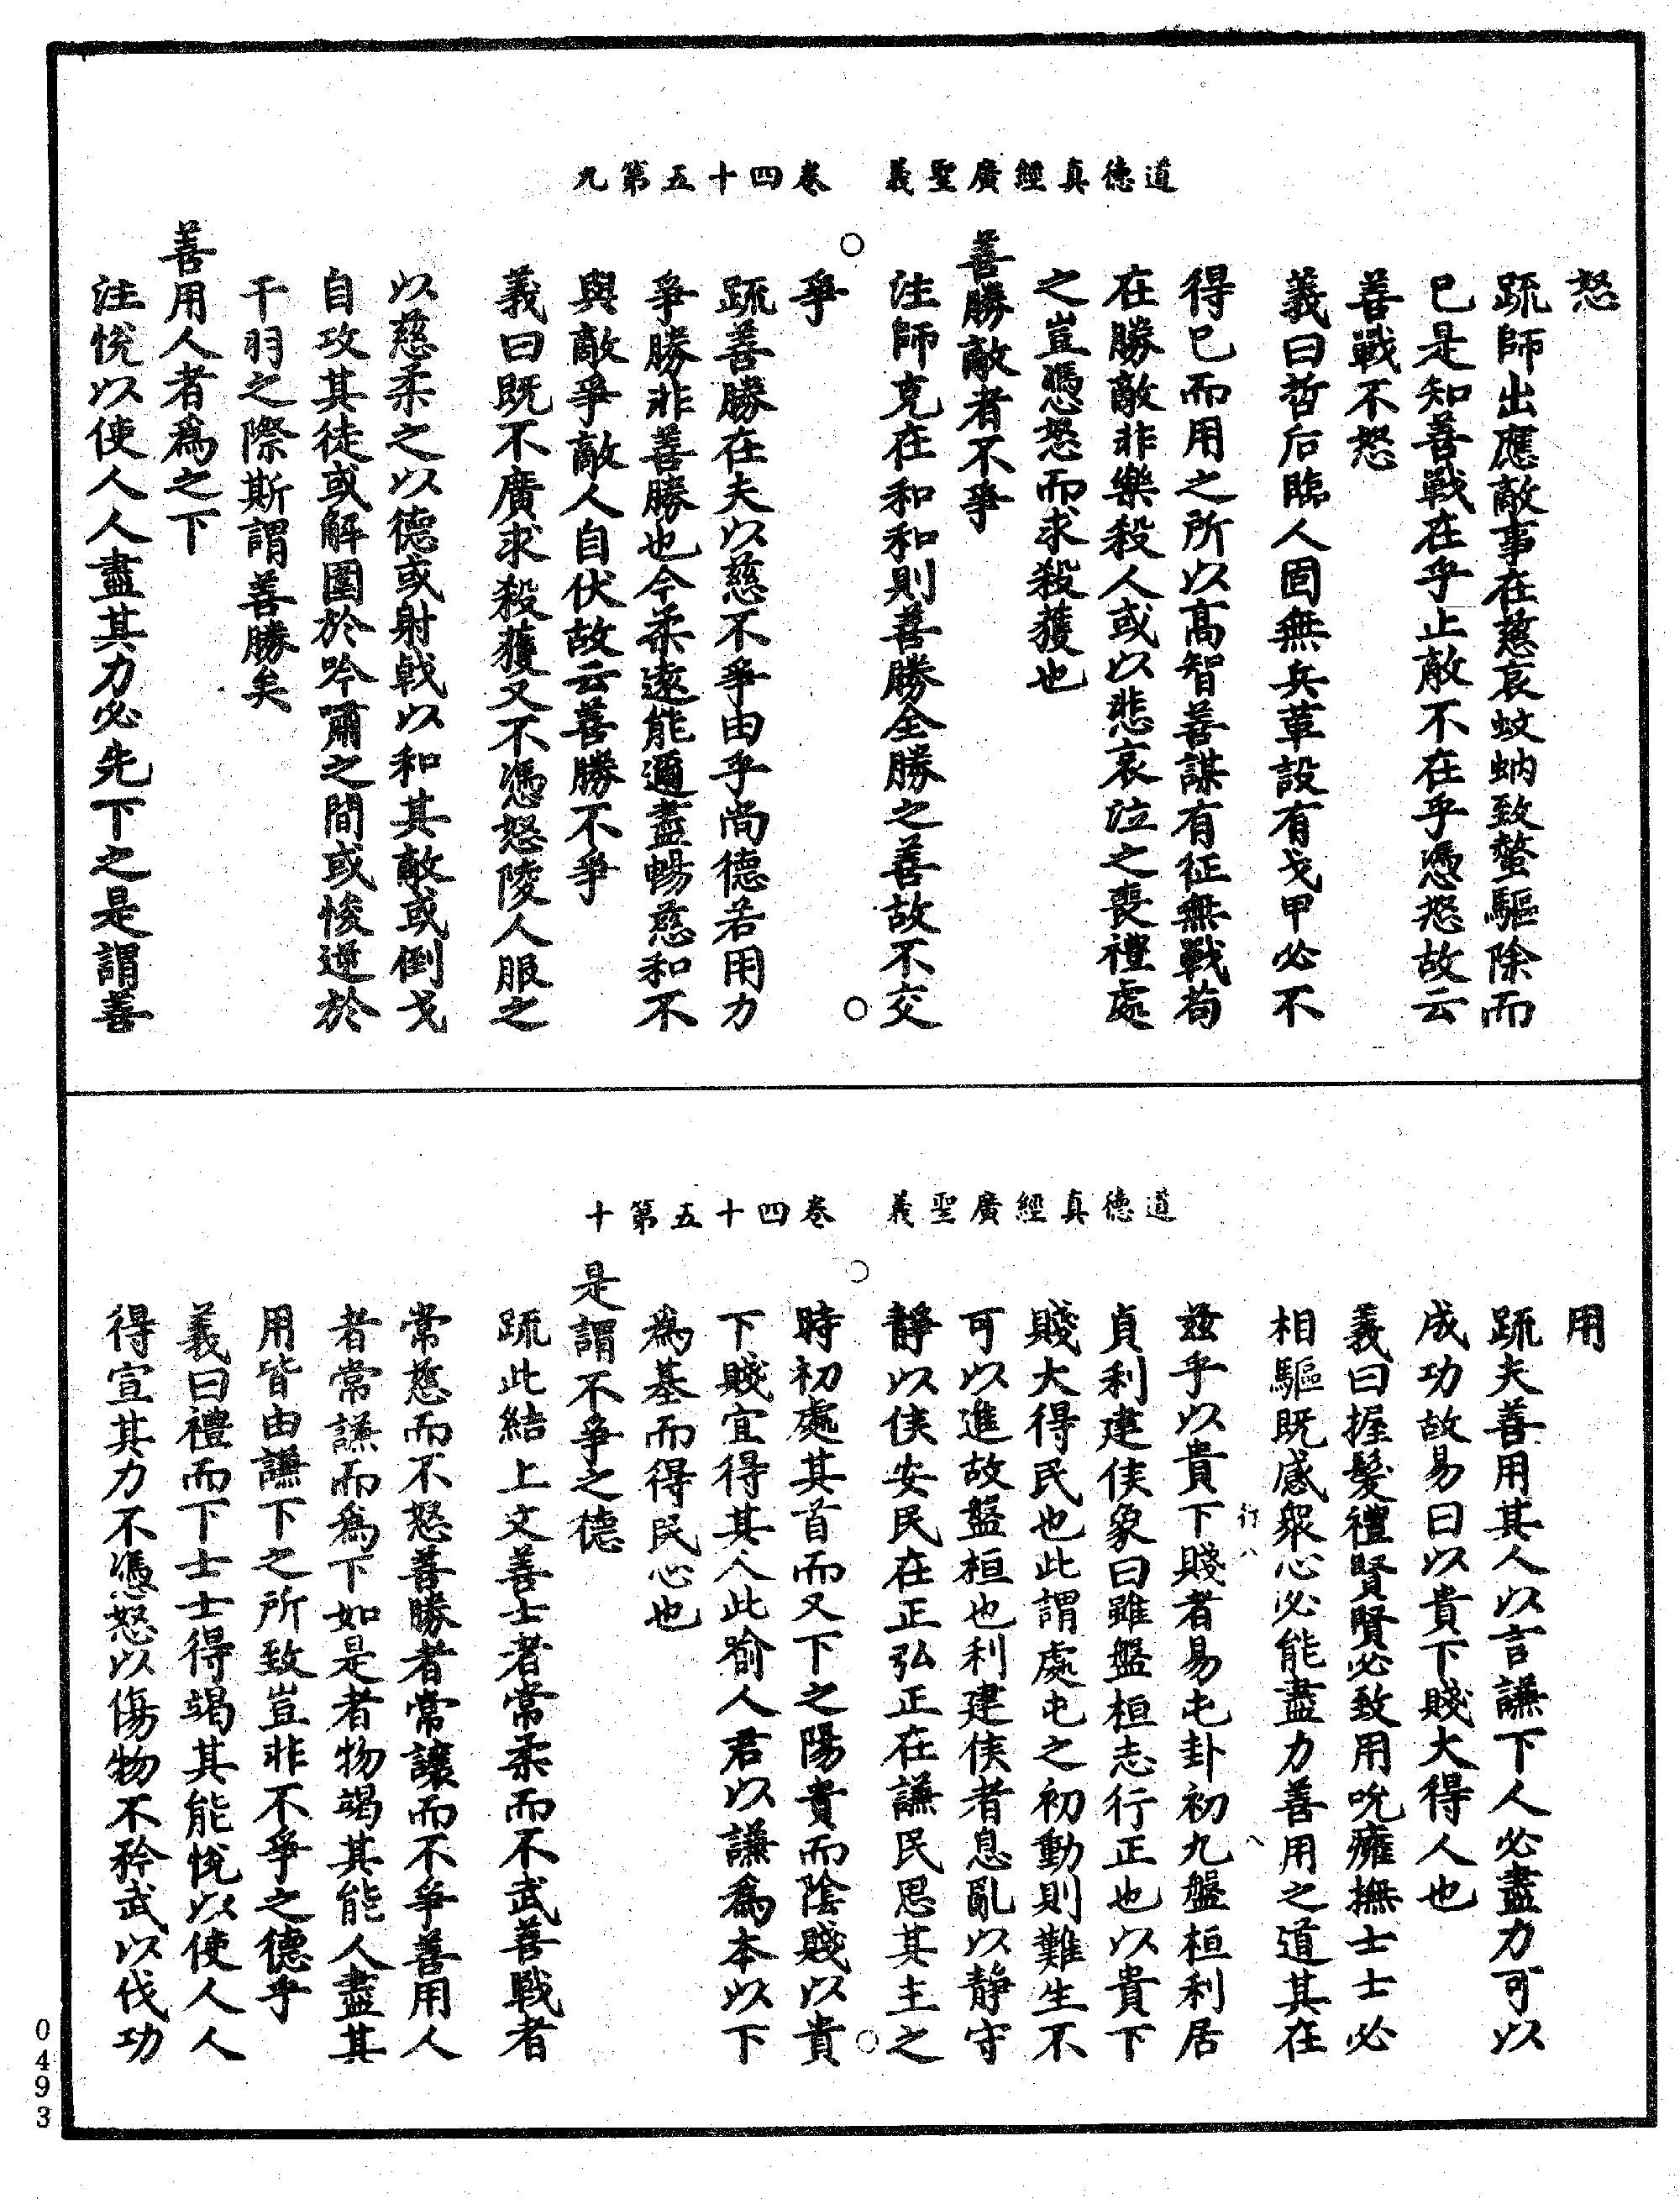 道德真經廣聖義　卷四十五第九
怒
䟽師出應敵事在慈哀蚊蚋致螫驅除而
已是知善戰在乎止敵不在乎憑怒故云
善戰不怒
義曰哲后臨人固無兵革設有戈甲必不
得已而用之所以高智善謀有征無戰苟
在勝敵非樂殺人或以悲哀泣之喪禮處
之豈憑怒而求殺獲也
善勝敵者不爭
注師克在和和則善勝全勝之善故不交
爭
䟽善勝在夫以慈不爭由乎尚德若用力
爭勝非善勝也今柔遠能邇盡暢慈和不
與敵爭敵人自伏故云善勝不爭
義曰既不廣求殺獲又不憑怒陵人服之
以慈柔之以德或射戟以和其敵或倒戈
自攻其徒或解圍於吟嘯之間或悛逆於
干羽之際斯謂善勝矣
善用人者爲之下
注悅以使人人盡其力必先下之是謂善
道德真經廣聖義　卷四十五第十
用
䟽夫善用其人以言謙下人必盡力可以
成功故易曰以貴下賤大得人也
義曰握髮禮賢賢必致用吮癰撫士士必
相驅既感衆心必能盡力善用之道其在
茲乎以貴下賤者易屯卦初九盤桓利居
貞利建侯象曰雖盤桓志行正也以貴下
賤大得民也此謂處屯之初動則難生不
可以進故盤桓也利建侯者息亂以靜守
靜以侯安民在正弘正在謙民思其主之
時初處其首而又下之陽貴而陰賤以貴
下賤宜得其人此喻人君以謙爲本以下
爲基而得民心也
是謂不爭之德
䟽此結上文善士者常柔而不武善戰者
常慈而不怒善勝者常讓而不爭善用人
者常謙而爲下如是者物竭其能人盡其
用皆由謙下之所致豈非不爭之德乎
義曰禮而下士士得竭其能悅以使人人
得宣其力不憑怒以傷物不矜武以伐功
行八
八
0493